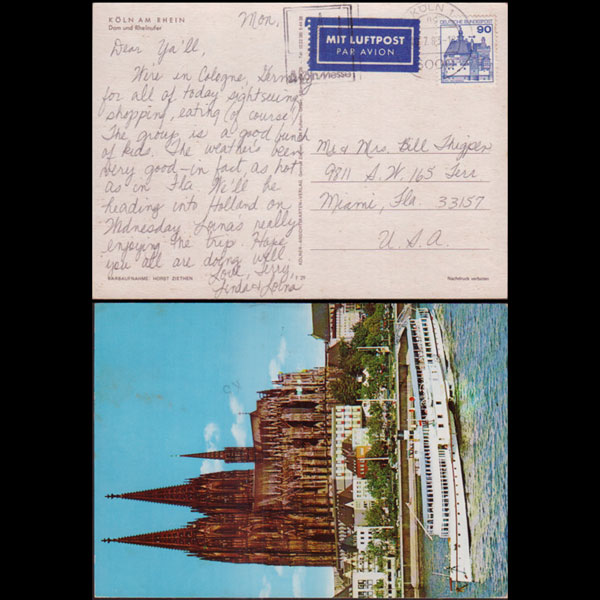 KÖLN AM RHEIN
Dom und Rheinufer
Mon.
Dear Ya'll,
We're in Cologne, Germany
for all of today sightseeing,
shopping, eating (of course).
The group is a good bunch
of kids. The weather's been
very good - in fact, as hot
as in Fla. We'll be
heading into Holland on
Wednesday. Lorna's really
enjoying the trip. Hope
you all are doing well.
Love, Terry,
Linda & Lorna
FARBAUFNAHME: HORST ZIETHEN
MIT LUFTPOST
PAR AVION
KÖLN 1
5000
DEUTSCHE BUNDESPOST
90
Mr & Mrs. Bill Thigpen
9811 S.W. 165 Terr
Miami, Fla. 33157
U.S.A.
Nachdruck verboten